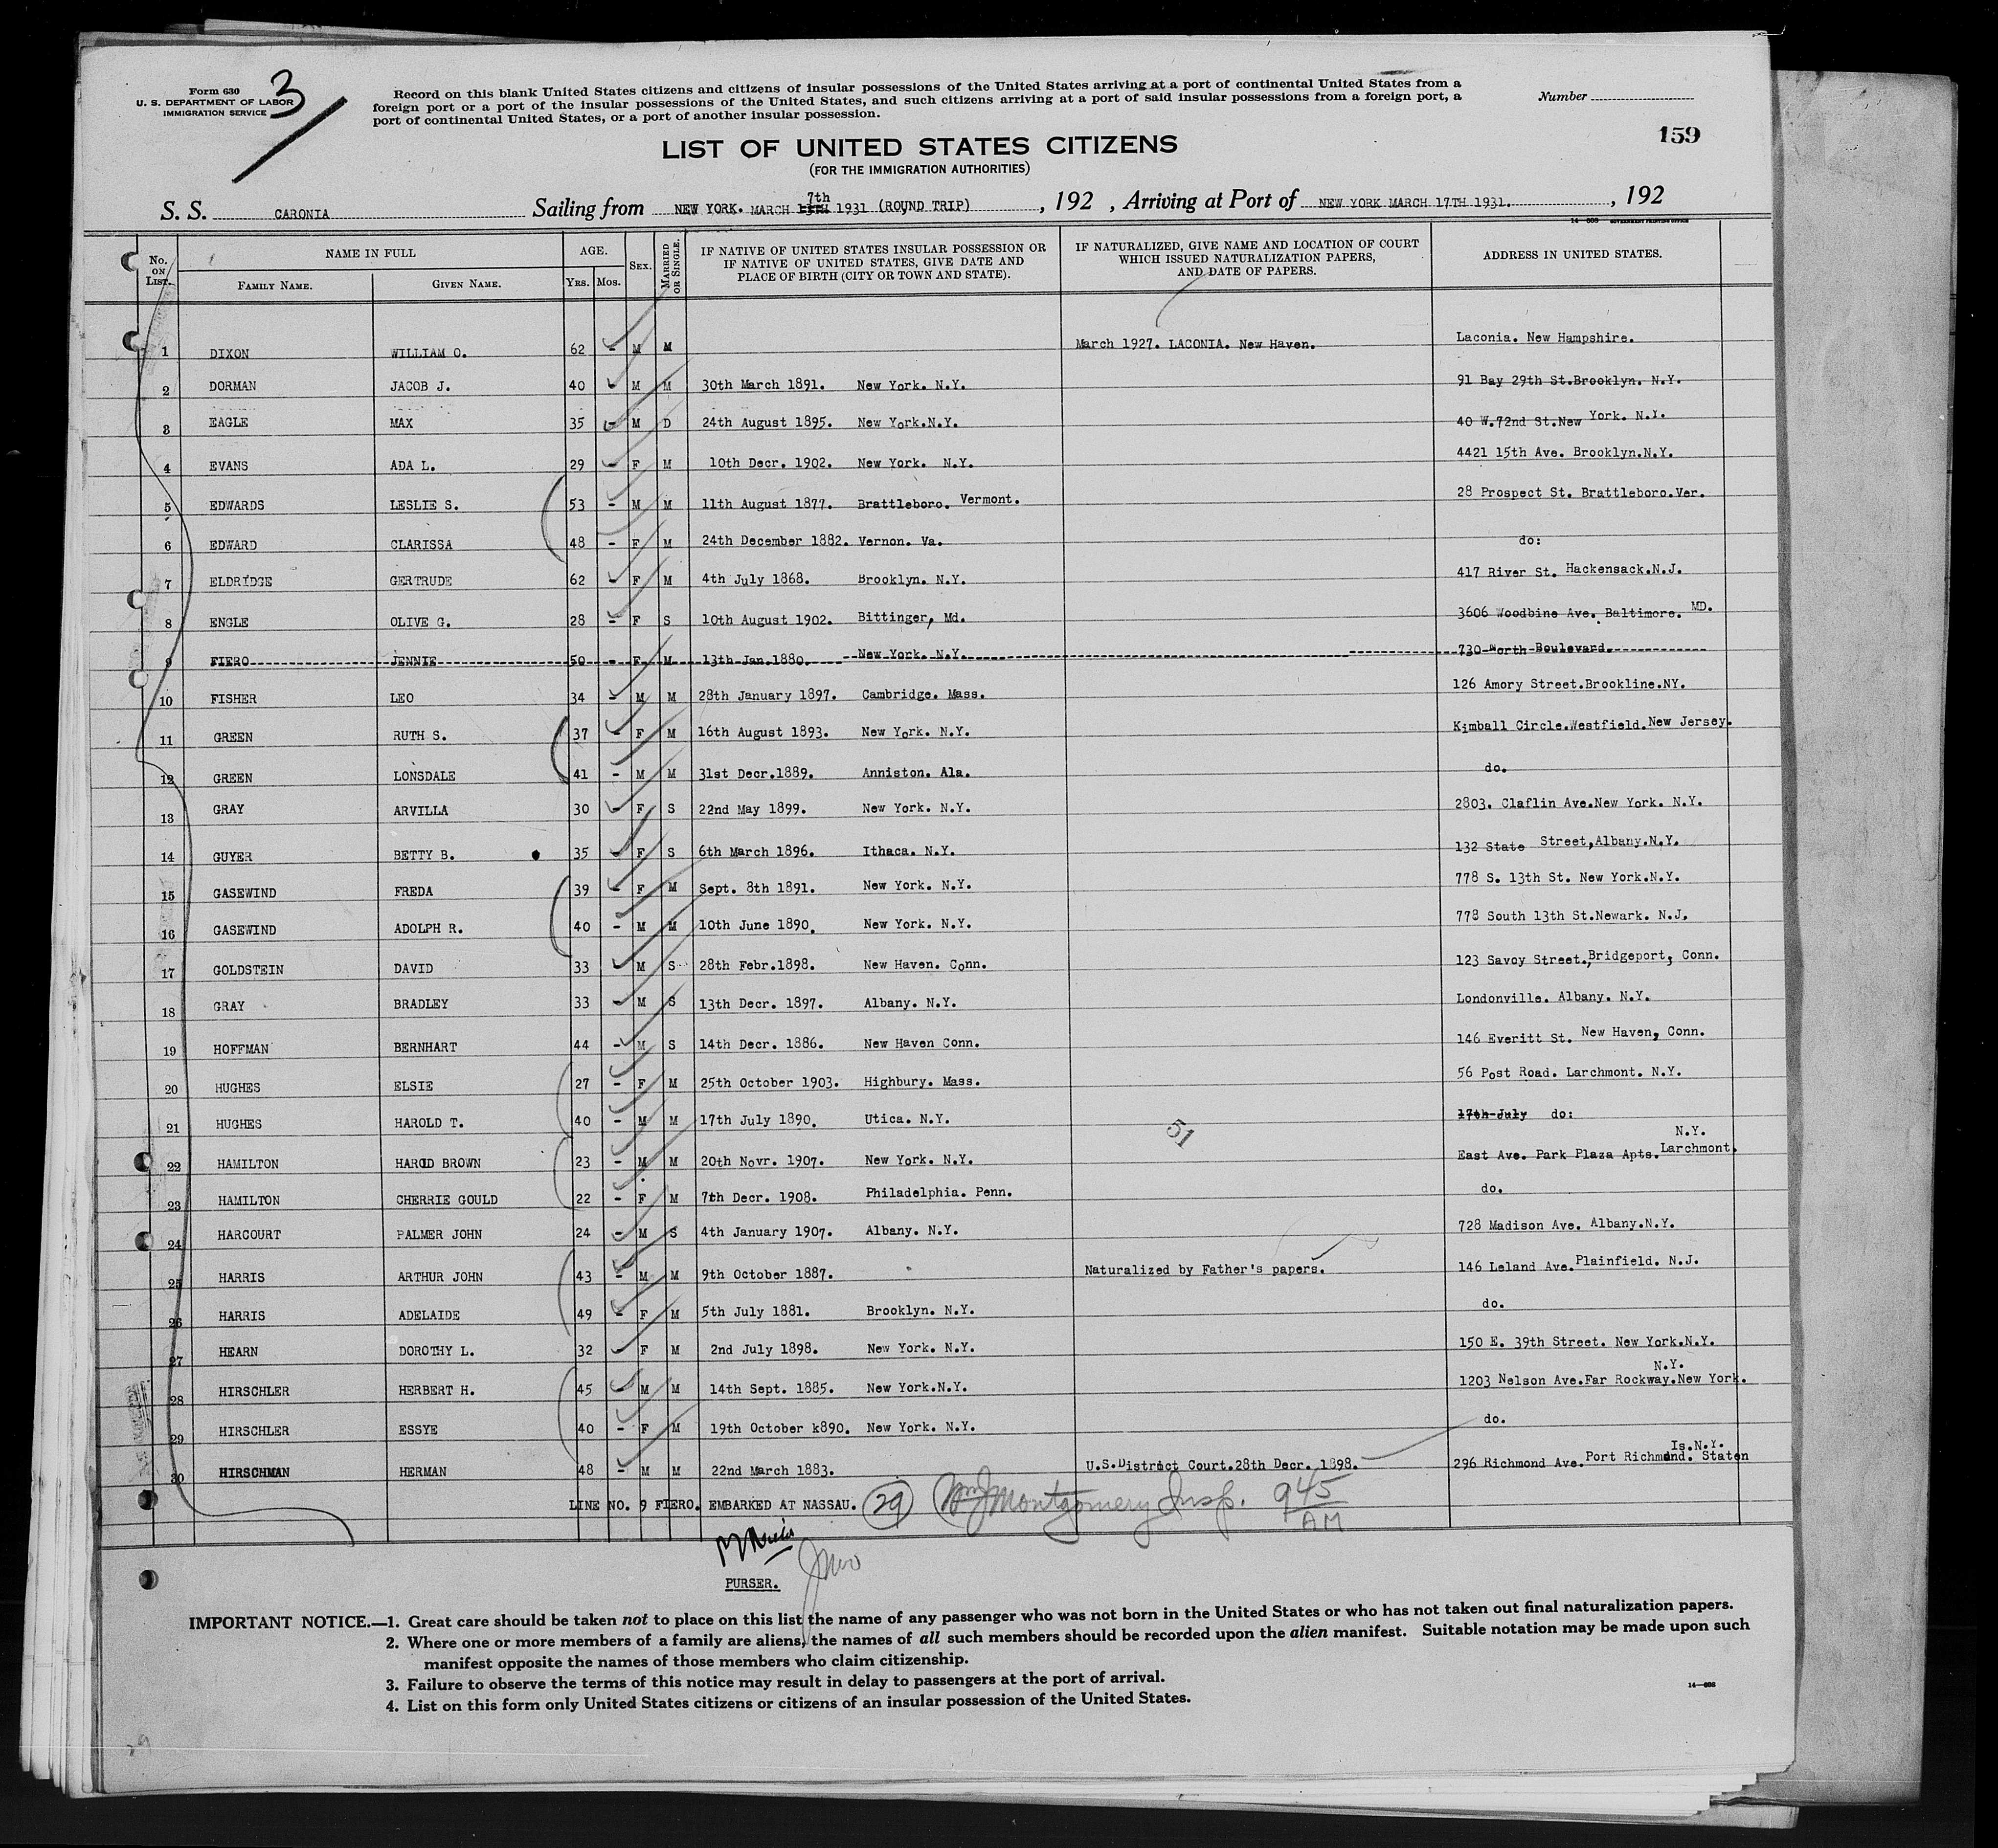 Form 630
U. S. DEPARTMENT OF LABOR
IMMIGRATION SERVICE
3
Record on this blank United States citizens and citizens of insular possessions of the United States arriving at a port of continental United States from a
foreign port or a port of the insular possessions of the United States, and such citizens arriving at a port of said insular possessions from a foreign port, a
port of continental United States, or a port of another insular possession.
Number
159
LIST OF UNITED STATES CITIZENS
(FOR THE IMMIGRATION AUTHORITIES)
7th
S. S. CARONIA Sailing from NEW YORK. MARCH 1931 (ROUND TRIP), 192 , Arriving at Port of NEW YORK MARCH 17TH 1931., 192
No. ON LIST. NAME IN FULL FAMILY NAME. GIVEN NAME. AGE. YRS. MOS. SEX. MARRIED OR SINGLE. IF NATIVE OF UNITED STATES INSULAR POSSESSION OR IF NATIVE OF UNITED STATES, GIVE DATE AND PLACE OF BIRTH (CITY OR TOWN AND STATE). IF NATURALIZED, GIVE NAME AND LOCATION OF COURT WHICH ISSUED NATURALIZATION PAPERS, AND DATE OF PAPERS. ADDRESS IN UNITED STATES.
1 DIXON WILLIAM O. 62 - M M March 1927. LACONIA. New Haven. Laconia. New Hampshire.
2 DORMAN JACOB J. 40 - M M 30th March 1891. New York. N.Y. 91 Bay 29th St.Brooklyn. N.Y.
3 EAGLE MAX 35 - M D 24th August 1895. New York.N.Y. 40 W.72nd St.New York. N.Y.
4 EVANS ADA L. 29 - F M 10th Decr. 1902. New York. N.Y. 4421 15th Ave. Brooklyn.N.Y.
5 EDWARDS LESLIE S. 53 - M M 11th August 1877. Brattleboro. Vermont. 28 Prospect St. Brattleboro.Ver.
6 EDWARD CLARISSA 48 - F M 24th December 1882. Vernon. Va. do:
7 ELDRIDGE GERTRUDE 62 - F M 4th July 1868. Brooklyn. N.Y. 417 River St. Hackensack.N.J.
8 ENGLE OLIVE G. 28 - F S 10th August 1902. Bittinger, Md. 3606 Woodbine Ave. Baltimore. MD.
9 FIERO JENNIE 50 - F M 13th Jan.1880. New York. N.Y. 730 North Boulevard.
10 FISHER LEO 34 - M M 28th January 1897. Cambridge. Mass. 126 Amory Street.Brookline.NY.
11 GREEN RUTH S. 37 - F M 16th August 1893. New York. N.Y. Kimball Circle.Westfield.New Jersey.
12 GREEN LONSDALE 41 - M M 31st Decr.1889. Anniston. Ala. do.
13 GRAY ARVILLA 30 - F S 22nd May 1899. New York. N.Y. 2803. Claflin Ave.New York. N.Y.
14 GUYER BETTY B. 35 - F S 6th March 1896. Ithaca. N.Y. 132 State Street,Albany.N.Y.
15 GASEWIND FREDA 39 - F M Sept. 8th 1891. New York. N.Y. 778 S. 13th St. New York.N.Y.
16 GASEWIND ADOLPH R. 40 - M M 10th June 1890. New York. N.Y. 778 South 13th St.Newark. N.J.
17 GOLDSTEIN DAVID 33 M S 28th Febr.1898. New Haven. Conn. 123 Savoy Street.,Bridgeport, Conn.
18 GRAY BRADLEY 33 - M S 13th Decr. 1897. Albany. N.Y. Londonville. Albany. N.Y.
19 HOFFMAN BERNHART 44 - M S 14th Decr. 1886. New Haven Conn. 146 Everitt St. New Haven, Conn.
20 HUGHES ELSIE 27 - F M 25th October 1903. Highbury. Mass. 56 Post Road. Larchmont. N.Y.
21 HUGHES HAROLD T. 40 - M M 17th July 1890. Utica. N.Y. 17th July do:
51
N.Y.
22 HAMILTON HAROD BROWN 23 - M M 20th Novr. 1907. New York. N.Y. East Ave. Park Plaza Apts. Larchmont.
23 HAMILTON CHERRIE GOULD 22 - F M 7th Decr. 1908. Philadelphia. Penn. do.
24 HARCOURT PALMER JOHN 24 - M S 4th January 1907. Albany. N.Y. 728 Madison Ave. Albany.N.Y.
25 HARRIS ARTHUR JOHN 43 - M M 9th October 1887. Naturalized by Father's papers. 146 Leland Ave.Plainfield. N.J.
26 HARRIS ADELAIDE 49 - F M 5th July 1881. Brooklyn. N.Y. do.
27 HEARN DOROTHY L. 32 F M 2nd July 1898. New York. N.Y. 150 E. 39th Street. New York.N.Y.
N.Y.
28 HIRSCHLER HERBERT H. 45 - M M 14th Sept. 1885. New York.N.Y. 1203 Nelson Ave.Far Rockway.New York.
29 HIRSCHLER ESSYE 40 - F M 19th October k890. New York. N.Y. do.
Is.N.Y.
30 HIRSCHMAN HERMAN 48 - M M 22nd March 1883. U.S.District Court.28th Decr. 1898. 296 Richmond Ave.Port Richmond. Staten
LINE NO. 9 FIERO. EMBARKED AT NASSAU. 29 Wm J Montgomery Insp. 945 AM
PURSER.
IMPORTANT NOTICE.—1. Great care should be taken not to place on this list the name of any passenger who was not born in the United States or who has not taken out final naturalization papers.
2. Where one or more members of a family are aliens, the names of all such members should be recorded upon the alien manifest. Suitable notation may be made upon such
manifest opposite the names of those members who claim citizenship.
3. Failure to observe the terms of this notice may result in delay to passengers at the port of arrival.
4. List on this form only United States citizens or citizens of an insular possession of the United States.